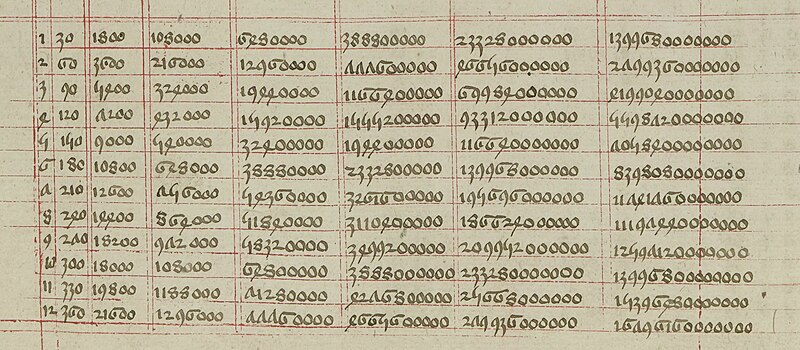 1 30 1800 108000 6480000 388800000 23328000000 1399680000000
2 60 3600 216000 12960000 777600000 46656000000 2799360000000
3 90 5400 324000 19440000 1166400000 69984000000 4199040000000
4 120 7200 432000 15920000 1555200000 93312000000 5598720000000
5 150 9000 540000 32400000 194400000 116640000000 7058400000000
6 180 10800 648000 38880000 2332800000 139968000000 8398080000000
7 210 12600 756000 45360000
8 240 14400 864000 51840000 3110400000 186624000000 11197440000000
9 270 18200 972000 58320000 3499200000 209952000000 12597120000000
10 300 18000 108000 64800000 3888000000 233280000000 13996800000000
11 330 19800 1188000 71280000 4276800000 25668000000 15396480000000
12 360 21600 1296000 77760000 4665600000 279936000000 16796160000000